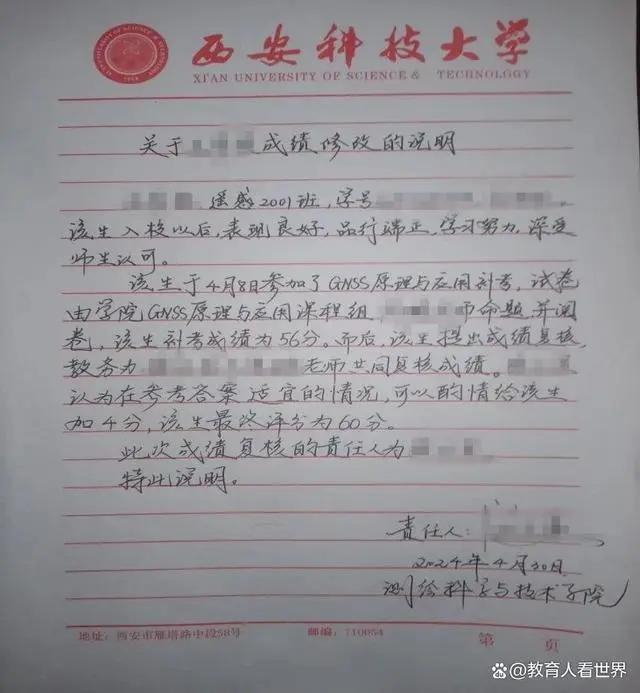 西安科技大学
XI'AN UNIVERSITY OF SCIENCE & TECHNOLOGY
关于 成绩修改的说明
遥感2001班,学号
该生入校以后,表现良好,品行端正,学习努力,深受
师生认可。
该生于4月8日参加了GNSS原理与应用补考,试卷
由学院GNSS原理与应用课程组 师命题并阅
卷,该生补考成绩为56分。而后,该生提出成绩复核,
教务为 老师共同复核成绩。
认为在参考答案适宜的情况,可以酌情给该生
加4分,该生最终评分为60分。
此次成绩复核的责任人为 。
特此说明。
责任人:
2024年4月30日
测绘科学与技术学院
地址:西安市雁塔路中段58号 邮编:710054 第 页
@教育人看世界